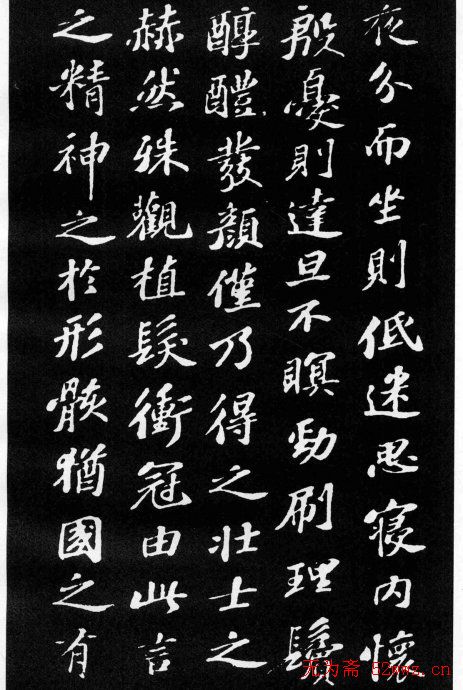 夜分而坐則低迷思寝内懷
殷憂則達旦不瞑勁刷理鬢
醇醴發顔僅乃得之壯士之
赫然殊觀植髮衝冠由此言
之精神之於形骸猶國之有
无为斋 52wwz.cn